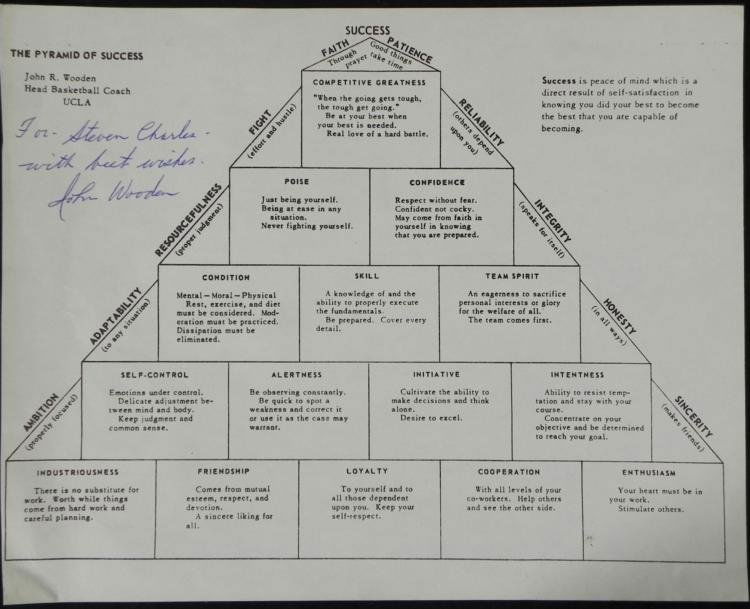 SUCCESS
FAITH
Through
prayer
PATIENCE
Good things
take time
THE PYRAMID OF SUCCESS
John R. Wooden
Head Basketball Coach
UCLA
For - Steven Charles -
with best wishes.
John Wooden
Success is peace of mind which is a
direct result of self-satisfaction in
knowing you did your best to become
the best that you are capable of
becoming.
COMPETITIVE GREATNESS
"When the going gets tough,
the tough get going."
Be at your best when
your best is needed.
Real love of a hard battle.
FIGHT
(effort and hustle)
RELIABILITY
(others depend
upon you)
POISE
Just being yourself.
Being at ease in any
situation.
Never fighting yourself.
CONFIDENCE
Respect without fear.
Confident not cocky.
May come from faith in
yourself in knowing
that you are prepared.
RESOURCEFULNESS
(proper judgment)
INTEGRITY
(speaks for itself)
CONDITION
Mental — Moral — Physical
Rest, exercise, and diet
must be considered. Mod-
eration must be practiced.
Dissipation must be
eliminated.
SKILL
A knowledge of and the
ability to properly execute
the fundamentals.
Be prepared. Cover every
detail.
TEAM SPIRIT
An eagerness to sacrifice
personal interests or glory
for the welfare of all.
The team comes first.
ADAPTABILITY
(to any situation)
HONESTY
(in all ways)
SELF-CONTROL
Emotions under control.
Delicate adjustment be-
tween mind and body.
Keep judgment and
common sense.
ALERTNESS
Be observing constantly.
Be quick to spot a
weakness and correct it
or use it as the case may
warrant.
INITIATIVE
Cultivate the ability to
make decisions and think
alone.
Desire to excel.
INTENTNESS
Ability to resist temp-
tation and stay with your
course.
Concentrate on your
objective and be determined
to reach your goal.
AMBITION
(properly focused)
SINCERITY
(makes friends)
INDUSTRIOUSNESS
There is no substitute for
work. Worth while things
come from hard work and
careful planning.
FRIENDSHIP
Comes from mutual
esteem, respect, and
devotion.
A sincere liking for
all.
LOYALTY
To yourself and to
all those dependent
upon you. Keep your
self-respect.
COOPERATION
With all levels of your
co-workers. Help others
and see the other side.
ENTHUSIASM
Your heart must be in
your work.
Stimulate others.